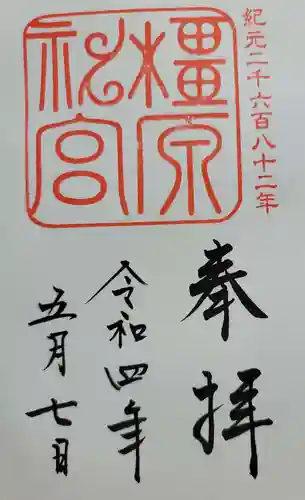 紀元二千六百八十二年
橿原
神宮
奉拝
令和四年
五月七日